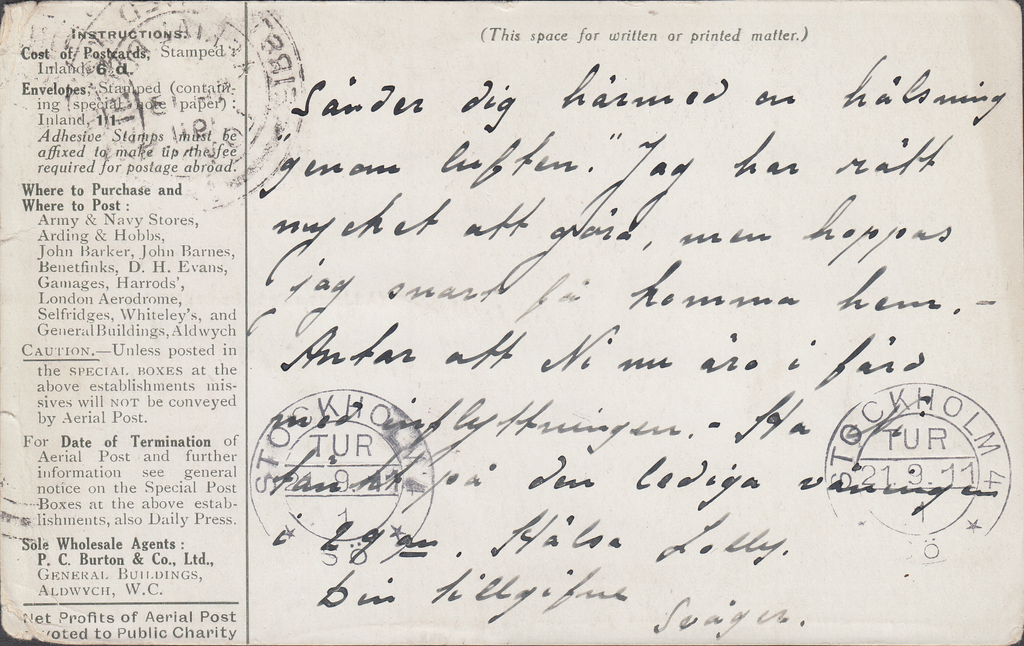 INSTRUCTIONS.
Cost of Postcards, Stamped:
Inland, 6½d.
Envelopes, Stamped (contain-
ing special note paper):
Inland, 1/1.
Adhesive Stamps must be
affixed to make up the fee
required for postage abroad.
Where to Purchase and
Where to Post:
Army & Navy Stores,
Arding & Hobbs,
John Barker, John Barnes,
Benetfinks, D. H. Evans,
Gamages, Harrods',
London Aerodrome,
Selfridges, Whiteley's, and
General Buildings, Aldwych
CAUTION.—Unless posted in
the SPECIAL BOXES at the
above establishments mis-
sives will NOT be conveyed
by Aerial Post.
For Date of Termination of
Aerial Post and further
information see general
notice on the Special Post
Boxes at the above estab-
lishments, also Daily Press.
Sole Wholesale Agents:
P. C. Burton & Co., Ltd.,
GENERAL BUILDINGS,
ALDWYCH, W.C.
Net Profits of Aerial Post
voted to Public Charity
(This space for written or printed matter.)
Sänder dig härmed en hälsning
"genom luften." Jag har rätt
mycket att göra, men hoppas
jag snart få komma hem. -
Antar att Ni nu äro i färd
med inflyttningen. - Ha Ni
tänkt på den lediga våningen
i 29an. Hälsa Lolly.
Din tillgifne
Svåger.
STOCKHOLM 4
TUR
1
SÖ
STOCKHOLM 4
TUR
21.9.11
1
SÖ